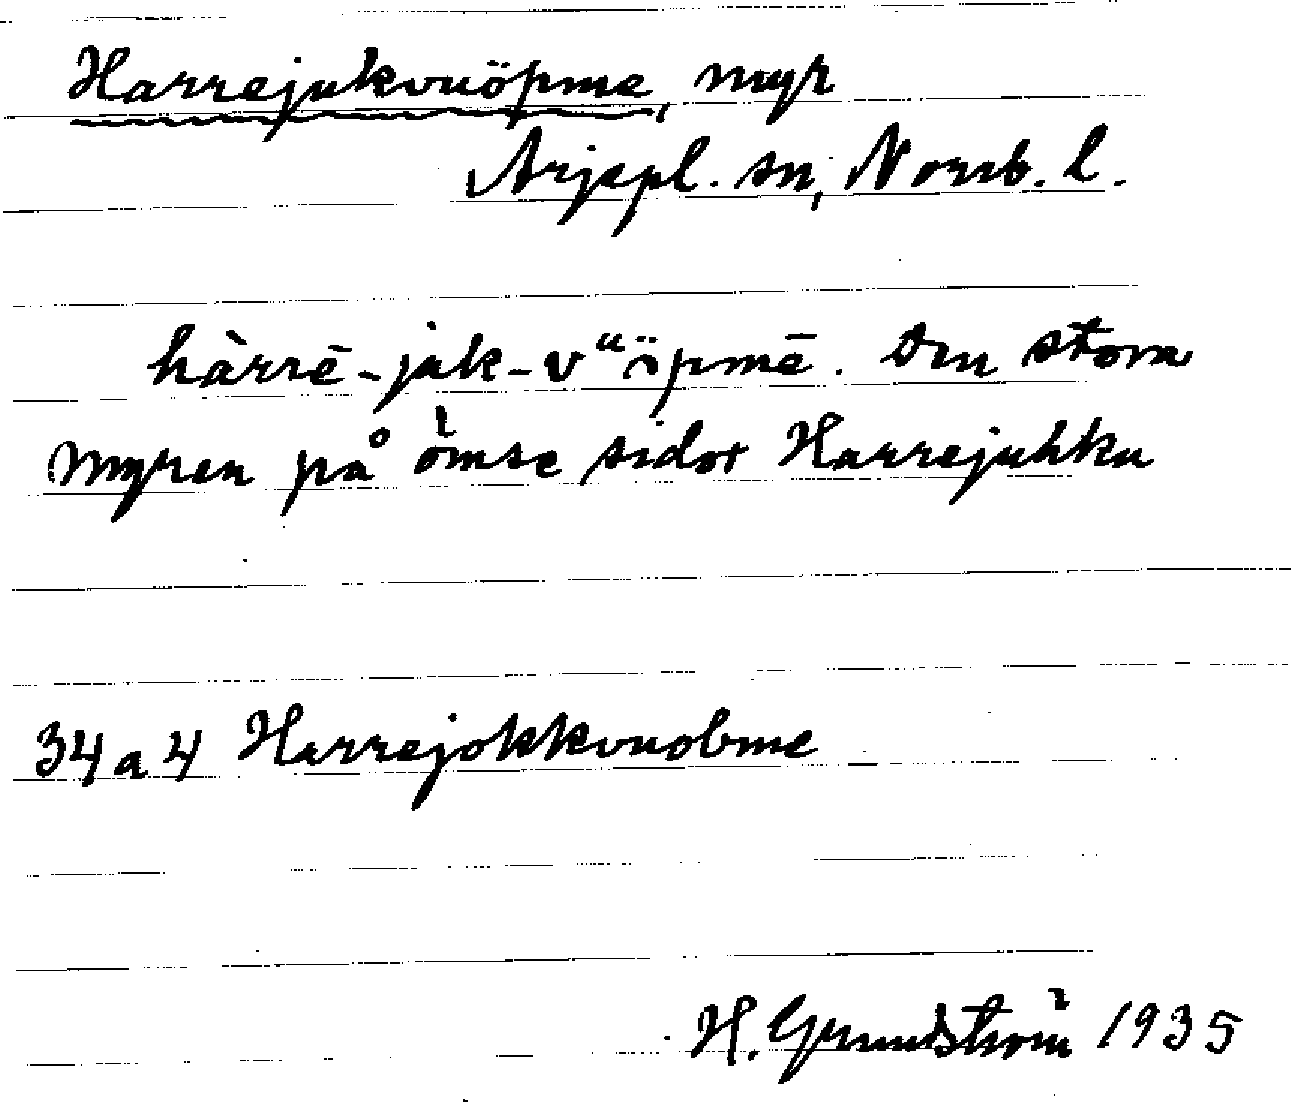 Harrejukvuöpme, myr
Arjepl. sn, Norrb. l.
hàrrē-juk-vᵘöpmē. Den stora
myren på ömse sidor Harrejuhku
34 a 4 Harrejokkvuobme
H. Grundström 1935